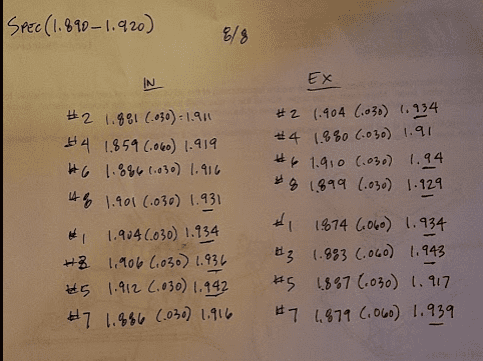 SPEC (1.890-1.920)
8/8
IN
#2 1.881 (.030)=1.911
#4 1.859 (.060) 1.919
#6 1.886 (.030) 1.916
#8 1.901 (.030) 1.931
#1 1.904 (.030) 1.934
#3 1.906 (.030) 1.936
#5 1.912 (.030) 1.942
#7 1.886 (.030) 1.916
EX
#2 1.904 (.030) 1.934
#4 1.880 (.030) 1.91
#6 1.910 (.030) 1.94
#8 1.899 (.030) 1.929
#1 1874 (.060) 1.934
#3 1.883 (.060) 1.943
#5 1.887 (.030) 1.917
#7 1.879 (.060) 1.939